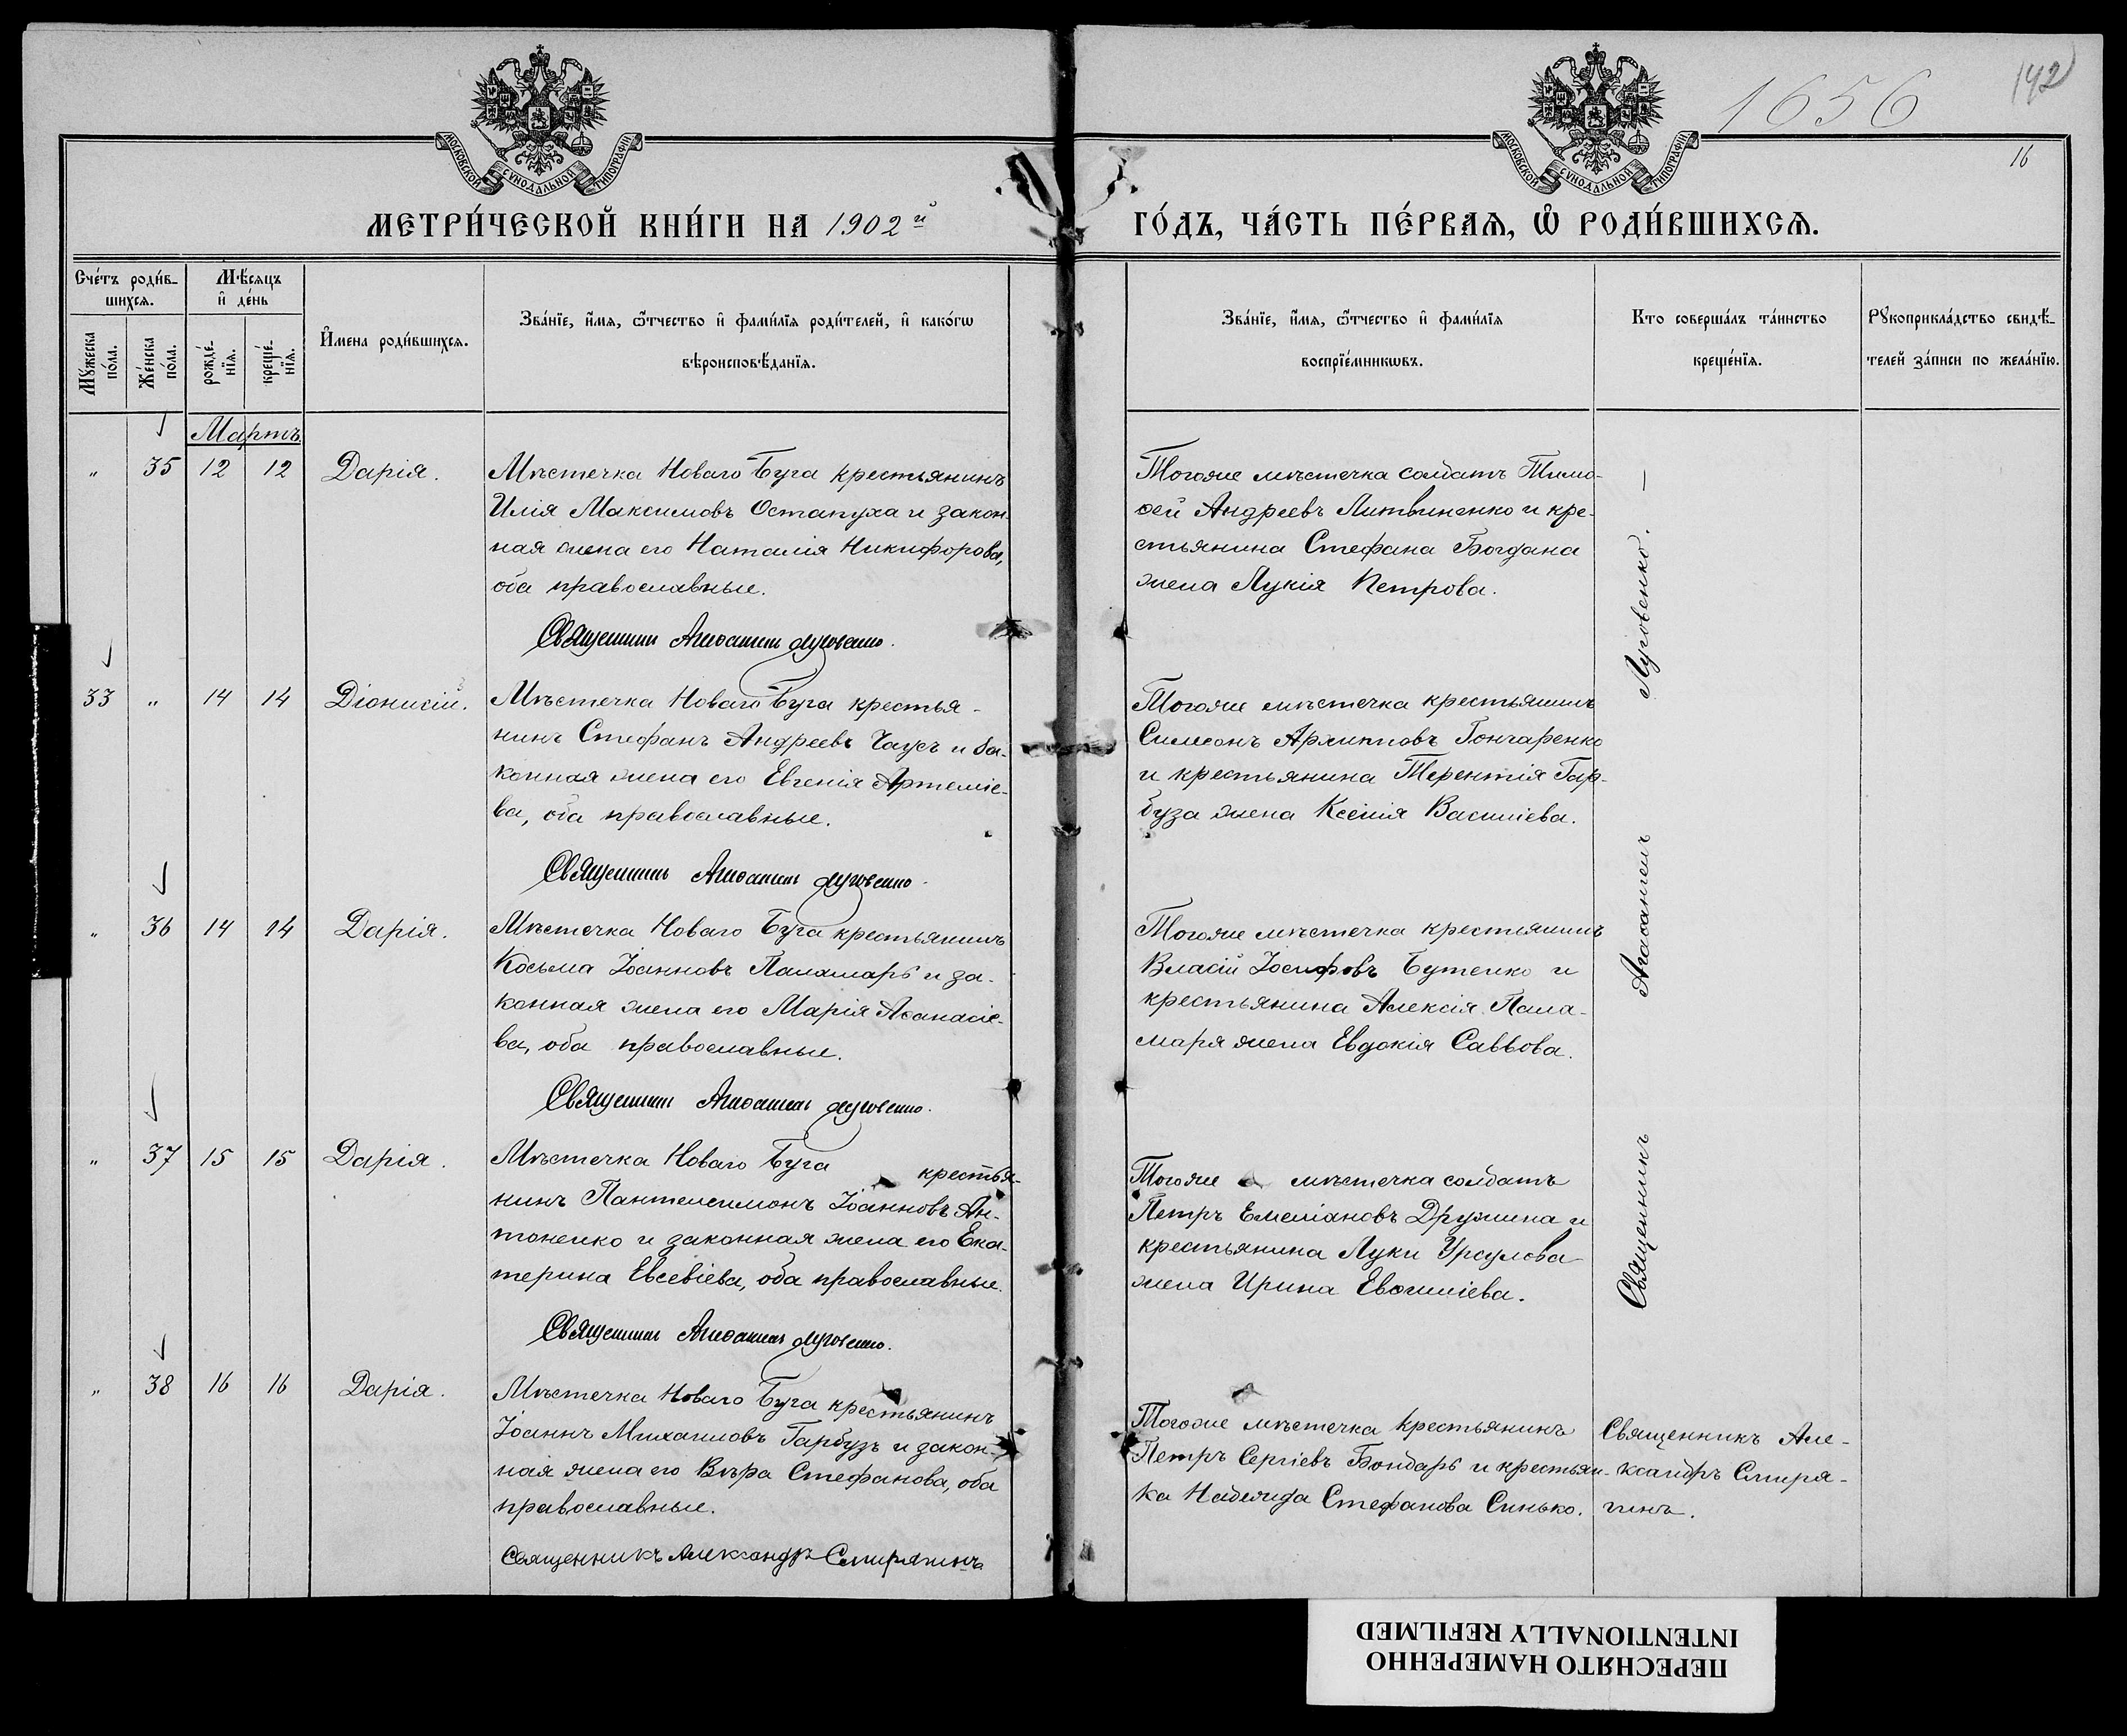 1656
142
16
МОСКОВСКОЙ СѴНОДАЛЬНОЙ ТИПОГРАФІИ
МОСКОВСКОЙ СѴНОДАЛЬНОЙ ТИПОГРАФІИ
МЕТРИ́ЧЕСКОЙ КНИ́ГИ НА 1902й
ГО́ДЪ, ЧА́СТЬ ПЕ́РВАѦ, Ѽ РОДИ́ВШИХСѦ.
Сче́тъ роди́в-
шихсѧ.
Мѣ́сѧцъ
и҆ де́нь
Мꙋ́жеска
по́ла.
Же́нска
по́ла.
рожде́-
нїѧ.
креще́-
нїѧ.
И҆мена роди́вшихсѧ.
Зва́нїе, и҆́мѧ, ѻ҆́тчество и҆ фами́лїѧ роди́телей, и҆ како́гѡ
вѣроисповѣ́данїѧ.
Зва́нїе, и҆́мѧ, ѻ҆́тчество и҆ фами́лїѧ
воспрїе́мникѡвъ.
Кто соверша́лъ та́инство
креще́нїѧ.
Рꙋкоприкла́дство свидѣ́-
телей за́писи по жела́нїю.
Мартъ
" 35 12 12 Дарія.
Мѣстечка Новаго Буга крестьянинъ
Илія Максимовъ Остапуха и закон-
ная жена его Наталія Никифорова,
оба православные.
Священникъ Агаѳангелъ Луговенко.
Тогоже мѣстечка солдатъ Тимо-
ѳей Андреевъ Литвиненко и кре-
стьянина Стефана Богдана
жена Лукія Петрова.
33 " 14 14 Діонисій.
Мѣстечка Новаго Буга крестья-
нинъ Стефанъ Андреевъ Чаусъ и за-
конная жена его Евгенія Артеміе-
ва, оба православные.
Священникъ Агаѳангелъ Луговенко.
Тогоже мѣстечка крестьянинъ
Симеонъ Гончаренко
и крестьянина Терентія Гар-
буза жена Ксенія Василіева.
" 36 14 14 Дарія.
Мѣстечка Новаго Буга крестьянинъ
Косьма Іоанновъ Паламарь и за-
конная жена его Марія Аѳанасіе-
ва, оба православные.
Священникъ Агаѳангелъ Луговенко.
Тогоже мѣстечка крестьянинъ
Власій Іосифовъ Бутенко и
крестьянина Алексія Пала-
маря жена Евдокія Саввова.
" 37 15 15 Дарія.
Мѣстечка Новаго Буга крестья-
нинъ Пантелеимонъ Іоанновъ Ан-
тоненко и законная жена его Ека-
терина Евсевіева, оба православные.
Священникъ Агаѳангелъ Луговенко.
Тогоже мѣстечка солдатъ
Петръ Емеліановъ Дружина и
крестьянина Луки Урсулова
жена Ирина Евѳиміева.
Священникъ Агаѳангелъ Луговенко. —
" 38 16 16 Дарія.
Мѣстечка Новаго Буга крестьянинъ
Іоаннъ Михаиловъ Гарбузъ и закон-
ная жена его Вѣра Стефанова, оба
православные.
Священникъ Александръ Смирягинъ
Тогоже мѣстечка крестьянинъ
Петръ Сергіевъ Бондарь и крестьян-
ка Надежда Стефанова Синько.
Священникъ Але-
ксандръ Смиря-
гинъ.
ПЕРЕСНЯТО НАМЕРЕННО
INTENTIONALLY REFILMED